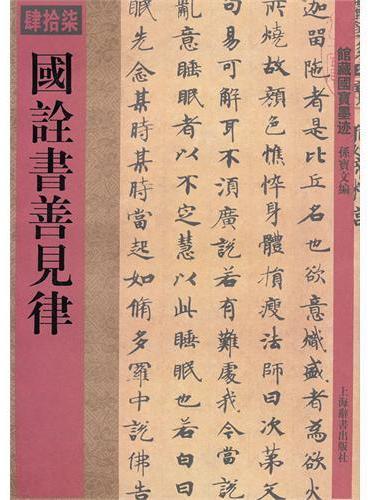 肆拾柒
國詮書善見律
館藏國寶墨迹
孫寶文編
上海辭書出版社
迦留陁者是比丘名也欲意熾盛者為欲火
所燒故顔色憔悴身體損瘦法師曰次第文
句易可解耳不須廣說若有難處我今當說
亂意睡眠者以不定慧以此睡眠也若白日
眠先念某時某時當起如脩多羅中說佛告